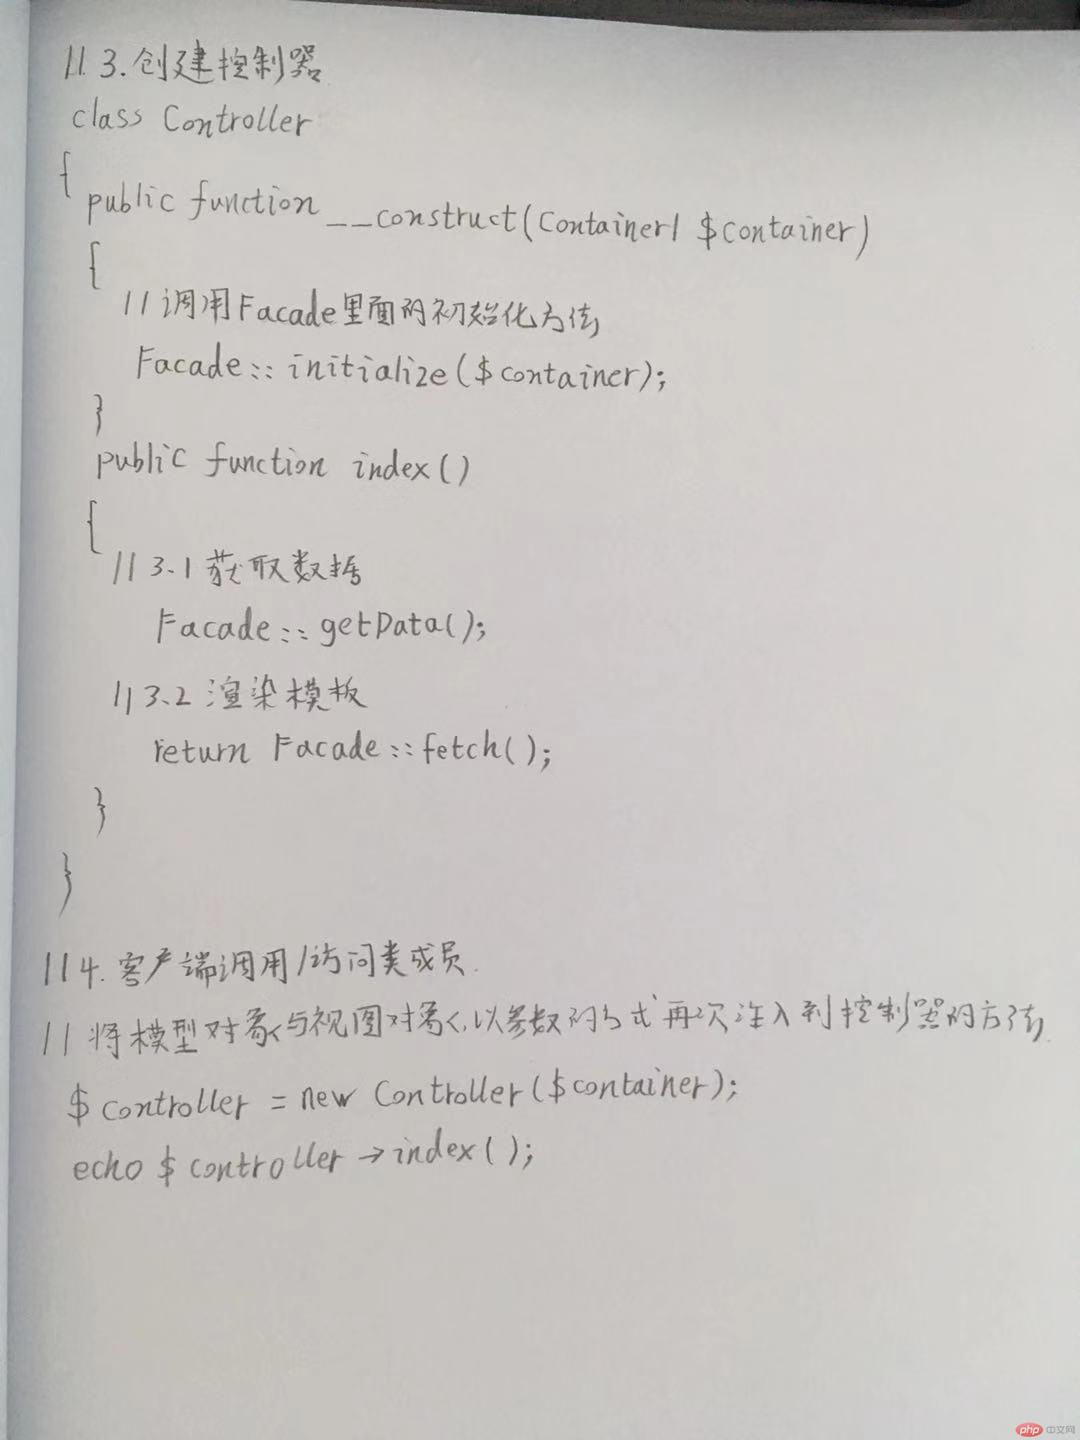 // 3.创建控制器
class Controller
{
public function __construct(Container1 $container)
{
// 调用Facade里面的初始化方法
Facade::initialize($container);
}
public function index()
{
// 3.1 获取数据
Facade::getData();
// 3.2 渲染模板
return Facade::fetch();
}
}
// 4.客户端调用/访问类成员.
// 将模型对象与视图对象,以参数的方式再次注入到控制器的方法
$controller = new Controller($container);
echo $controller→index();
php 中文网